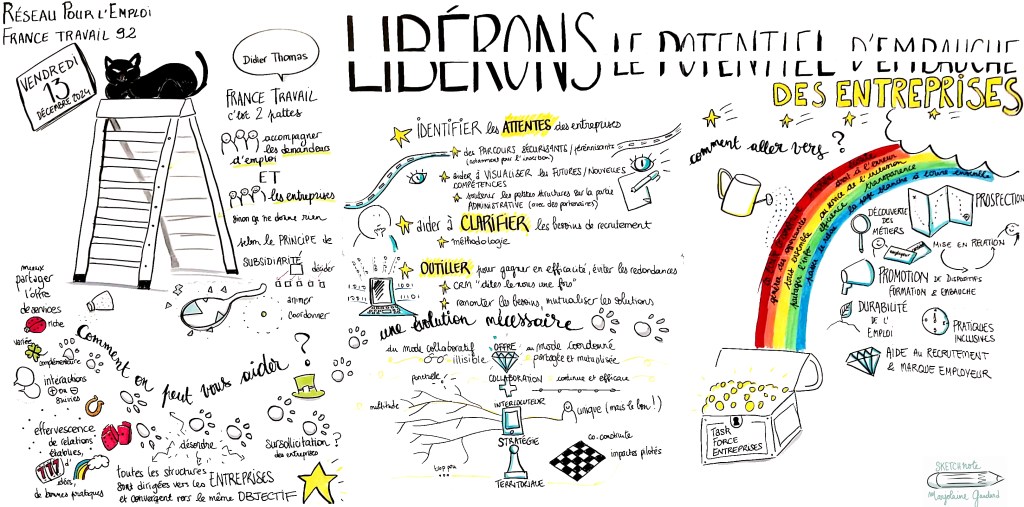 RÉSEAU POUR L'EMPLOI
FRANCE TRAVAIL 92
VENDREDI
13
DÉCEMBRE 2024
Didier Thomas
FRANCE TRAVAIL
c'est 2 pattes
accompagner
les demandeurs
d'emploi
ET
les entreprises
sinon ça ne donne rien
selon le PRINCIPE de
SUBSIDIARITÉ
décider
animer
coordonner
mieux
partager
l'offre
de services
riche
variée
complémentaire
interactions
suivies
effervescence
de relations
établies,
d'
idées,
de bonnes pratiques
Comment on peut vous aider ?
désordre
sursollicitation ?
des entreprises
toutes les structures
sont dirigées vers les ENTREPRISES
et convergent vers le même OBJECTIF
LIBÉRONS LE POTENTIEL D'EMBAUCHE
DES ENTREPRISES
IDENTIFIER les ATTENTES des entreprises
des PARCOURS SÉCURISANTS / pérennisants
(notamment par l'insertion)
aider à VISUALISER les FUTURES / NOUVELLES
COMPÉTENCES
soutenir les petites structures sur la partie
ADMINISTRATIVE (avec des partenaires)
aider à CLARIFIER les besoins de recrutement
méthodologie
OUTILLER pour gagner en efficacité, éviter les redondances
CRM "dites le nous une fois"
remonter les besoins, mutualiser les solutions
une évolution nécessaire
du mode collaboratif
illisible
OFFRE
au mode coordonné
partagée et mutualisée
COLLABORATION
continue et efficace
multitude
INTERLOCUTEUR
unique (mais le bon !)
STRATÉGIE
TERRITORIALE
co-construite
impactes pilotés
comment aller vers ?
tout ensemble
partager l'info
efficience
transparence
PROSPECTION
DÉCOUVERTE
DES
MÉTIERS
MISE EN RELATION
PROMOTION DE DISPOSITIFS
FORMATION & EMBAUCHE
DURABILITÉ
DE
L'EMPLOI
PRATIQUES
INCLUSIVES
AIDE AU RECRUTEMENT
& MARQUE EMPLOYEUR
Task
FORCE
ENTREPRISES
SKETCHNOTE
Marjolaine Gaudard